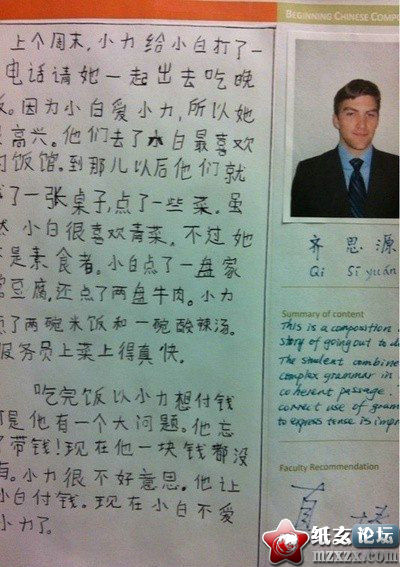 BEGINNING CHINESE COMPO
上个周末,小力给小白打了一
电话请她一起出去吃晚
。因为小白爱小力,所以她
高兴。他们去了小白最喜欢
饭馆。到那儿以后他们就
了一张桌子,点了一些菜。虽
小白很喜欢青菜,不过她
是素食者。小白点了一盘家
豆腐,还点了两盘牛肉。小力
了两碗米饭和一碗酸辣汤。
服务员上菜上得真快。
吃完饭以小力想付钱
是他有一个大问题。他忘
带钱!现在他一块钱都没
有。小力很不好意思。他让
小白付钱。现在小白不爱
小力了。
齐思源
Qi Sīyuán
Summary of content
This is a composition
story of going out to di
The student combine
complex grammar in
coherent passage.
correct use of gram
to express tense is impr
Faculty Recommendation
纸玄论坛
mzxzx.com